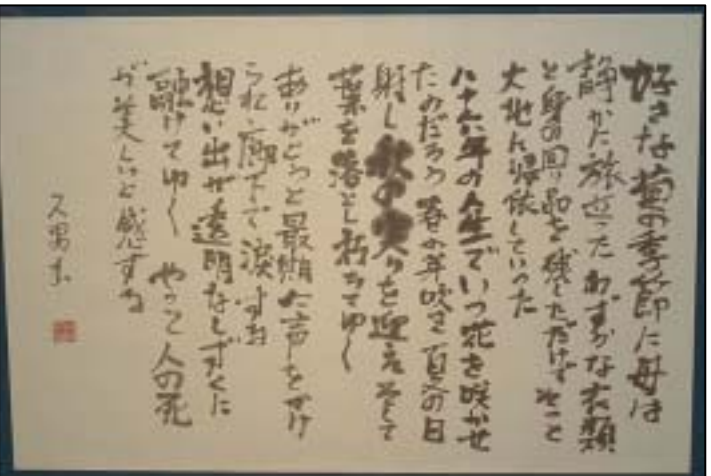 好きな菊の季節に母は
静かに旅立った わずかな衣類
と身の回り品を残しただけで そっと
大地に帰依していった
八十六年の人生でいつ花を咲かせ
たのだろう 春の芽吹き 夏の日
射し 秋の実りを迎え そして
葉を落とし朽ちてゆく
ありがとうと最期に声をかけ
られ 廊下で涙する
想い出が透明なしずくに
融けてゆく やっと人の死
が美しいと感ずる